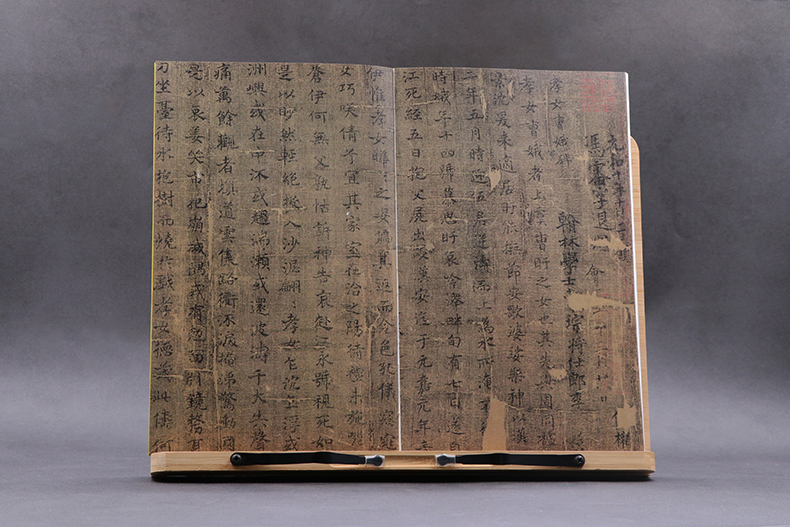 元和十年
馮審字退
翰林學士
孝女曹娥碑
孝女曹娥者上虞曹盱之女也其先與周同祖
沈爰来適居盱能撫節安歌婆娑樂神以漢
二年五月時迎伍君逆濤而上為水所淹不得
時娥年十四號慕思盱哀吟澤畔旬有七日遂自
江死經五日抱父屍出以漢安迄于元嘉元年
伊惟孝女曄曄之姿偏其返而令色孔儀窈窕
女巧咲倩兮宜其家室在洽之陽待禮未施
蒼伊何無父孰怙訴神告哀赴江永號視死如
是以眇然輕絕投入沙泥翩翩孝女乍沈乍浮或
洲嶼或在中流或趨湍瀨或還波濤千夫失聲
痛萬餘觀者填道雲集路衢流淚掩涕驚慟國
是以哀姜哭市杞崩城隅或有尅面引鏡剺耳
刀坐臺待水抱樹而燒於戲孝女德茂此儔何